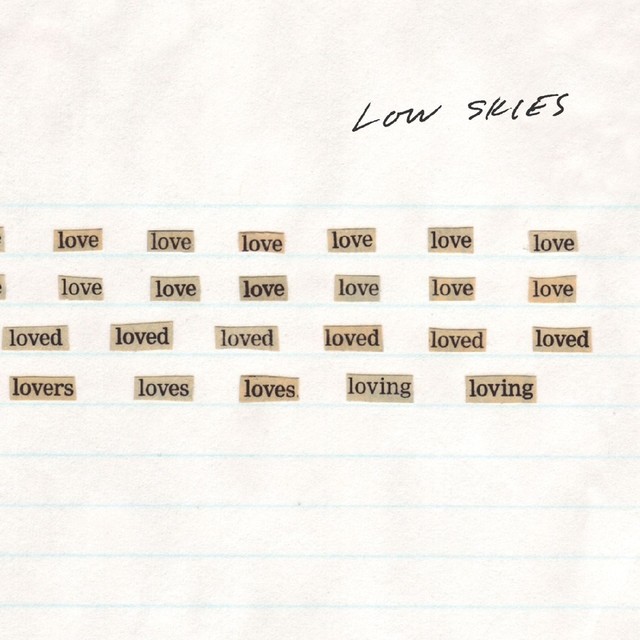 LOW SKIES
love love love love love love
love love love love love love
loved loved loved loved loved loved
lovers loves loves loving loving